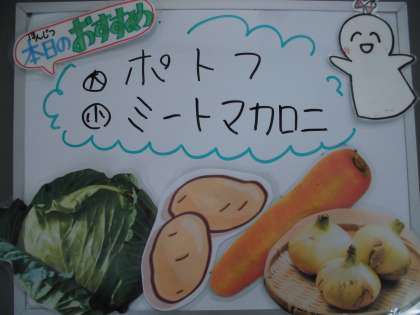 ほんじつ
本日のおすすめ
大 ポトフ
小 ミートマカロニ